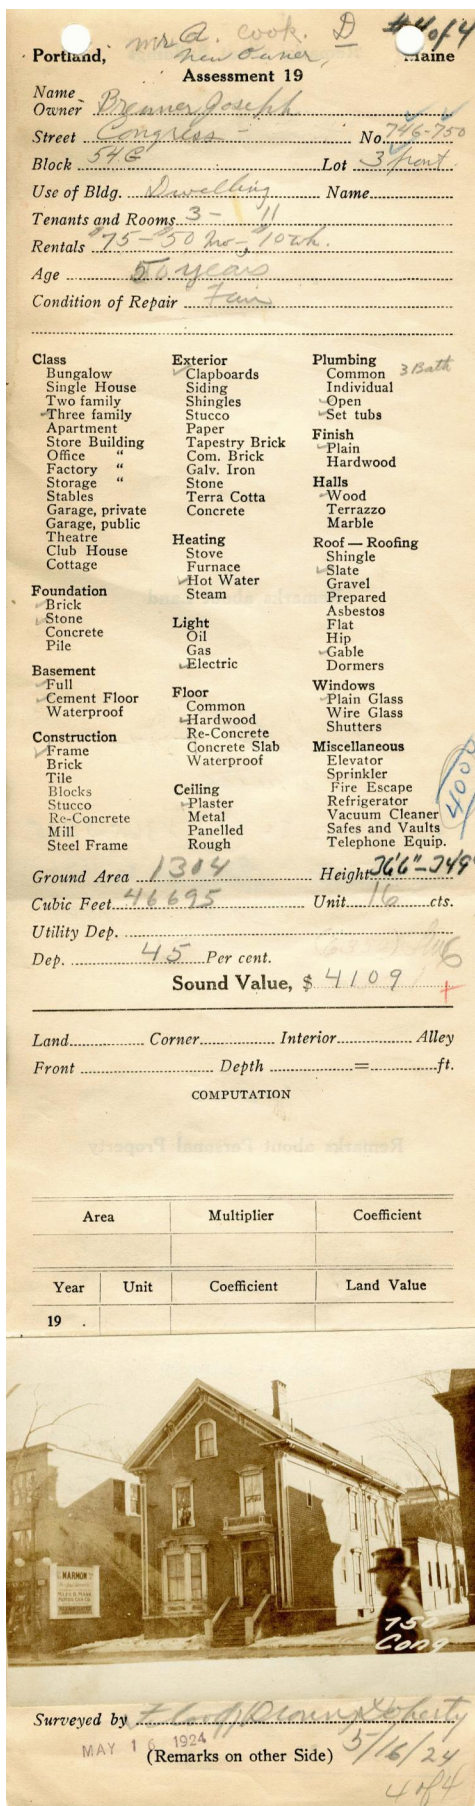 mr a. cook. D #4 of 4
Portland, new owner, Maine
Assessment 19
Name
Owner Brenner Joseph
Street Congress - No. 746-750
Block 54G Lot 3 front
Use of Bldg. Dwelling Name
Tenants and Rooms 3 - 11
Rentals $75 - $50 mo - $10 wk.
Age 50 years
Condition of Repair Fair
Class
Bungalow
Single House
Two family
Three family
Apartment
Store Building
Office "
Factory "
Storage "
Stables
Garage, private
Garage, public
Theatre
Club House
Cottage
Foundation
Brick
Stone
Concrete
Pile
Basement
Full
Cement Floor
Waterproof
Construction
Frame
Brick
Tile
Blocks
Stucco
Re-Concrete
Mill
Steel Frame
Exterior
Clapboards
Siding
Shingles
Stucco
Paper
Tapestry Brick
Com. Brick
Galv. Iron
Stone
Terra Cotta
Concrete
Heating
Stove
Furnace
Hot Water
Steam
Light
Oil
Gas
Electric
Floor
Common
Hardwood
Re-Concrete
Concrete Slab
Waterproof
Ceiling
Plaster
Metal
Panelled
Rough
Plumbing
Common 3 Bath
Individual
Open
Set tubs
Finish
Plain
Hardwood
Halls
Wood
Terrazzo
Marble
Roof — Roofing
Shingle
Slate
Gravel
Prepared
Asbestos
Flat
Hip
Gable
Dormers
Windows
Plain Glass
Wire Glass
Shutters
Miscellaneous
Elevator
Sprinkler
Fire Escape
Refrigerator
Vacuum Cleaner
Safes and Vaults
Telephone Equip.
4000
Ground Area 1304 Height 36'6"-34'9"
Cubic Feet 46695 Unit 16 cts.
Utility Dep.
Dep. 45 Per cent.
Sound Value, $ 4109 +
Land Corner Interior Alley
Front Depth = ft.
COMPUTATION
Remarks about Personal Property
Area Multiplier Coefficient
Year Unit Coefficient Land Value
19 .
MARMON
750
Cong
Surveyed by
MAY 16 1924 5/16/24
(Remarks on other Side)
4 of 4